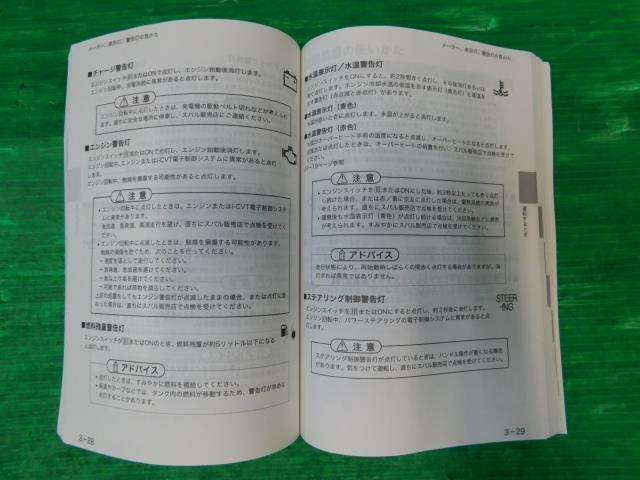 メーター、表示灯、警告灯の見かた
■チャージ警告灯
エンジンスイッチⅢまたはONで点灯し、エンジン始動後消灯します。
エンジン回転中、充電系統に異常があると点灯します。
注意
エンジン回転中に点灯したときは、発電機の駆動ベルト切れなどが考えられます。直ちに安全な場所に停車し、スバル販売店にご連絡ください。
■エンジン警告灯
エンジンスイッチⅢまたはONで点灯し、エンジン始動後消灯します。
エンジン回転中、エンジンまたはi-CVT電子制御システムに異常があると点灯
します。
エンジン回転中、触媒を損傷する可能性があると点滅します。
注意
• エンジン回転中に点灯したときは、エンジンまたはi-CVT電子制御システ
ムに異常があります。
急加速、急登坂、高速走行を避け、直ちにスバル販売店で点検を受けてく
ださい。
• エンジン回転中に点滅したときは、触媒を損傷する可能性があります。
触媒の損傷を防ぐため、次のことを行ってください。
－速度を落として走行してください。
－急発進、急加速を避けてください。
－急な上り坂を避けてください。
－可能であれば荷物を減らしてください。
上記の処置をしてもエンジン警告灯が点滅したままの場合、または点灯に変
わった場合は、直ちにスバル販売店で点検を受けてください。
■燃料残量警告灯
エンジンスイッチがⅢまたはONのとき、燃料残量が約5リットル以下になる
と点灯します。
アドバイス
• 点灯したときは、すみやかに燃料を補給してください。
• 坂道やカーブなどでは、タンク内の燃料が移動するため、警告灯が早めに
点灯することがあります。
3－28
メーター、表示灯、警告灯の見かた
■水温表示灯／水温警告灯
エンジンスイッチをONにすると、約2秒間赤く点灯し、その後消灯あるいは
■水温表示灯（青色）
水温が低いときに点灯します。水温が上がると消灯します。
■水温警告灯（赤色）
注意
• エンジンスイッチをⅢまたはONにした後、約3秒以上たっても赤く点灯
し続けた場合、または赤／青に交互に点灯した場合は、電気系統の異常が
考えられます。直ちにスバル販売店で点検を受けてください。
• 暖機後も水温表示灯（青色）が点灯し続ける場合は、冷却系統などに異常が
考えられます。すみやかにスバル販売店で点検を受けてください。
アドバイス
走行状態により、再始動時しばらくの間赤く点灯する場合がありますが、消
灯すれば異常ではありません。
■ステアリング制御警告灯
STEER
-ING
エンジンスイッチをⅢまたはONにすると点灯し、約2秒後に消灯します。
エンジン回転中、パワーステアリングの電子制御システムに異常があると点
灯します。
注意
ステアリング制御警告灯が点灯しているときは、ハンドル操作が重くなる場合
があります。気をつけて運転し、直ちにスバル販売店で点検を受けてください。
運転するとき
3－29